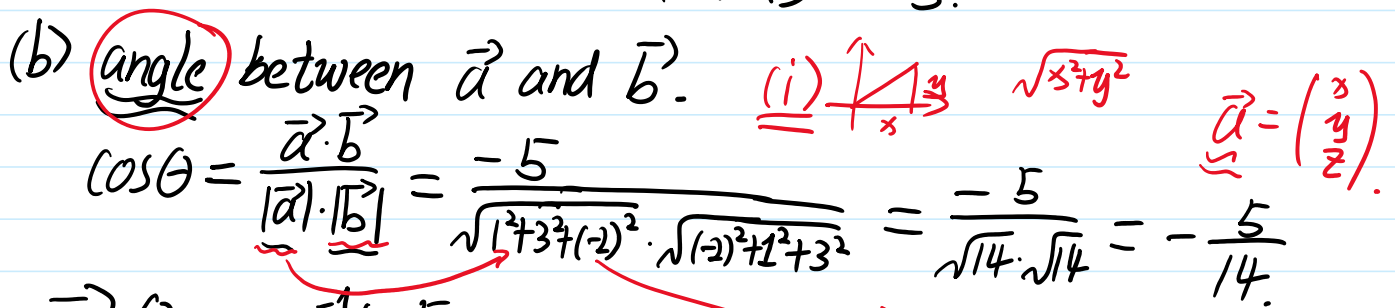 (b) angle between a⃗ and b⃗.
(i) y x √(x²+y²)
a⃗ = (x y z).
cosθ = (a⃗·b⃗)/(|a⃗|·|b⃗|) = -5/(√(1²+3²+(-2)²)·√((-2)²+1²+3²)) = -5/(√14·√14) = -5/14.